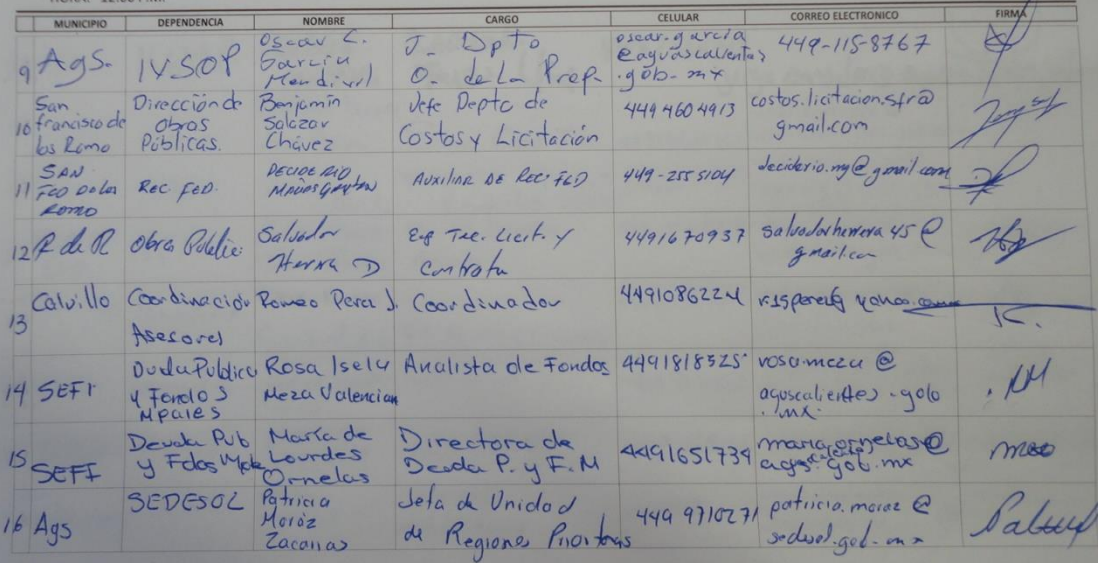 MUNICIPIO DEPENDENCIA NOMBRE CARGO CELULAR CORREO ELECTRONICO FIRMA
9 Ags. IVSOP Oscar L. García Mendivil J. Dpto O. de la Prep. oscar.garcia@aguascalientes.gob.mx 449-115-8767
10 San francisco de los Romo Dirección de Obras Públicas. Benjamín Salazar Chávez Jefe Depto de Costos y Licitación 449 460 4913 costos.licitacion.sfr@gmail.com
11 SAN FCO DE LOS ROMO REC. FED. DECIDERIO AUXILIAR DE REC FED 449-255 5104 deciderio.mg@gmail.com
12 R de R Obras Publicas Salvador Herrera D Enc Tec. Licit. y Contrato 4491670937 salvadorherrera45@gmail.com
13 Calvillo Coordinacion Asesores Romeo Perez J. Coordinador 4491086224
14 SEFI Duda Publica y Fondos Mpales Rosa Isela Meza Valencian Analista de Fondos 4491818525 rosa.meza@aguscalientes.gob.mx.
15 SEFI Deuda Pub y Fdos Mpale María de Lourdes Ornelas Directora de Deuda P. y F.M 4491651734 maria.ornelas@ags.gob.mx
16 Ags SEDESOL Patricia Moráz Zacarias Jefa de Unidad de Regiones Prioritarias 449 9710271 patricia.moraz@sedesol.gob.mx